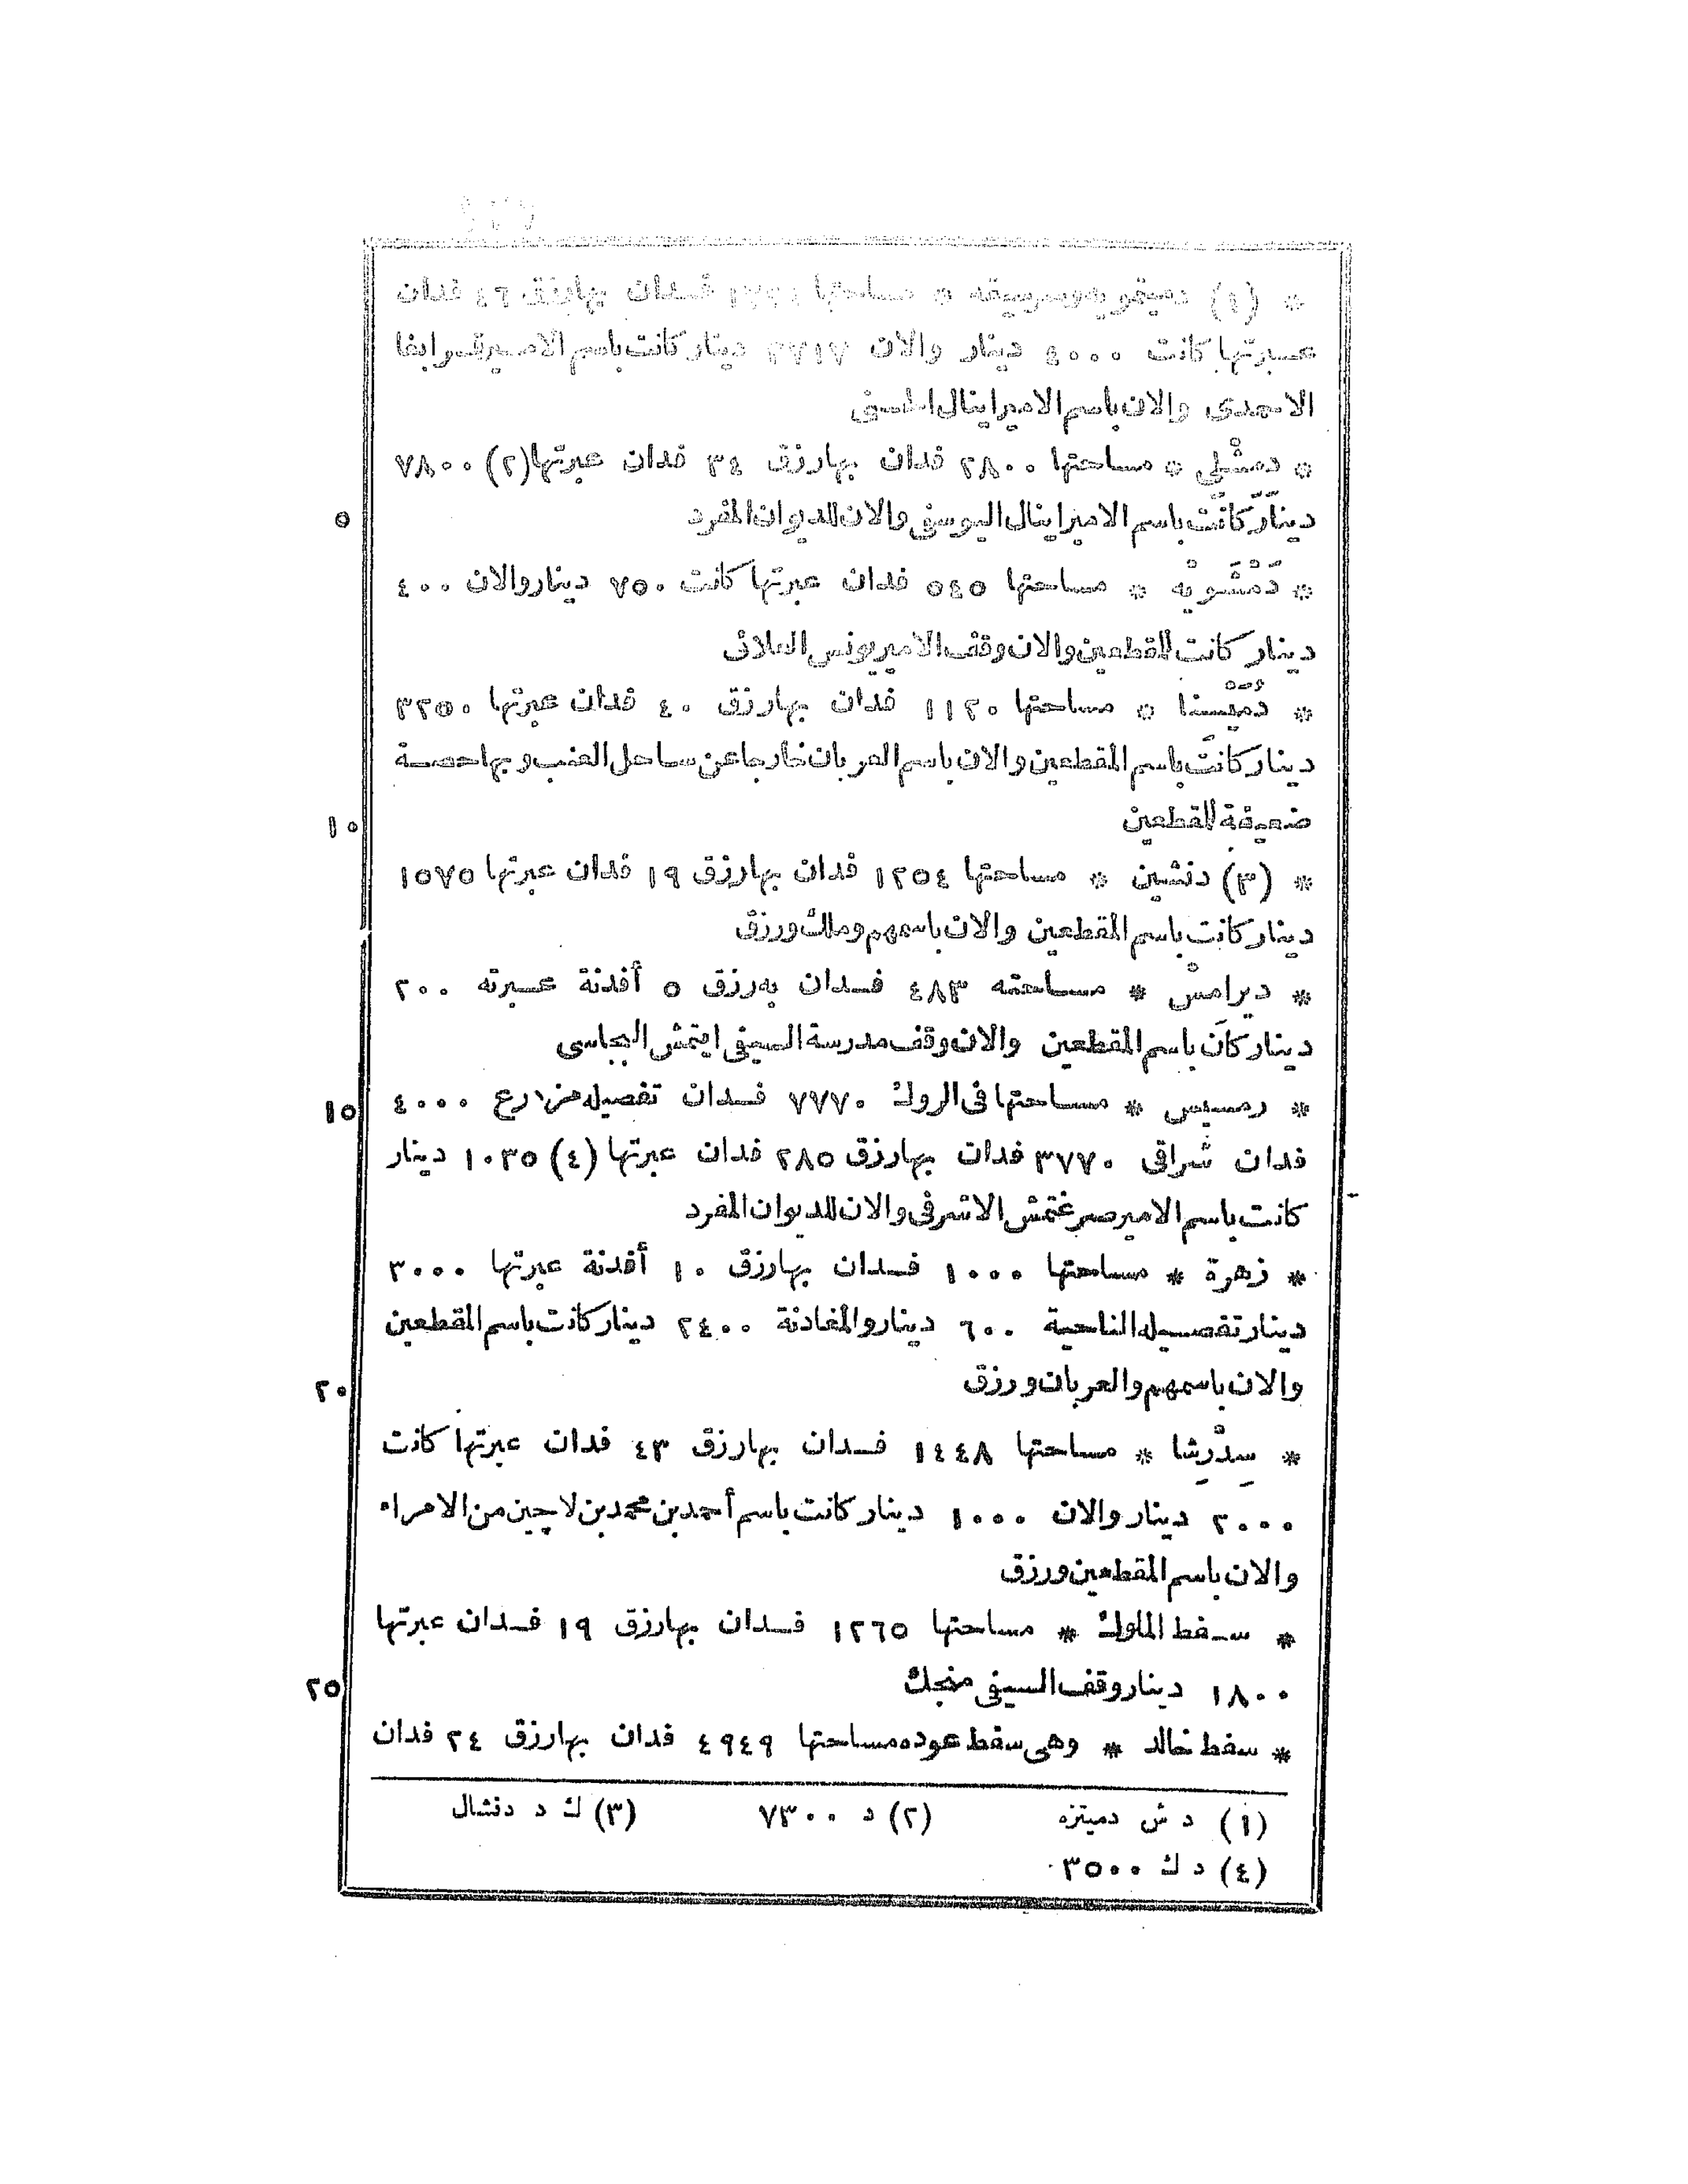 * (١) مساحتها فدان بهارزق ٤٦ فدان
عبرتها كانت ٤٠٠٠ دينار والان ٢٧١٧ دينار كانت باسم الامير قرابغا
الاحمدى والان باسم الامير اينال اليوسفى
* دمشلى * مساحتها ٢٨٠٠ فدان بهارزق ٣٤ فدان عبرتها (٢) ٧٨٠٠
دينار كانت باسم الامير اينال اليوسفى والان للديوان المفرد
٥
* دَمْشَويْه * مساحتها ٥٤٥ فدان عبرتها كانت ٧٥٠ دينار والان ٤٠٠
دينار كانت للقطعين والان وقف الامير يونس العلائى
* دُمَيْسَنا * مساحتها ١١٢٠ فدان بهارزق ٤٠ فدان عبرتها ٣٢٥٠
دينار كانت باسم المقطعين والان باسم العربان خارجا عن ساحل العنب وبها حصة
ضعيفة للقطعين
١٠
* (٣) دنشين * مساحتها ١٢٥٤ فدان بهارزق ١٩ فدان عبرتها ١٥٧٥
دينار كانت باسم المقطعين والان باسمهم وملك ورزق
* ديرامسْ * مساحته ٤٨٣ فدان به رزق ٥ أفدنة عبرته ٢٠٠
دينار كان باسم المقطعين والان وقف مدرسة السيفى ايتمش البجاسى
* رمسيس * مساحتها فى الروك ٧٧٧٠ فدان تفصيله مزارع ٤٠٠٠
١٥
فدان شراقى ٣٧٧٠ فدات بهارزق ٢٨٥ فدان عبرتها (٤) ١٠٣٥ دينار
كانت باسم الامير صرغتمش الاشرفى والان للديوان المفرد
* زهرة * مساحتها ١٠٠٠ فدان بهارزق ١٠ أفدنة عبرتها ٣٠٠٠
دينار تفصيله الناحية ٦٠٠ دينار والمغادنة ٢٤٠٠ دينار كانت باسم المقطعين
والان باسمهم والعربان ورزق
٢٠
* سِدْرِشا * مساحتها ١٤٤٨ فدان بهارزق ٤٣ فدان عبرتها كانت
٢٠٠٠ دينار والان ١٠٠٠ دينار كانت باسم أحمد بن محمد بن لاجين من الامراء
والان باسم المقطعين ورزق
* سفط الملوك * مساحتها ١٢٦٥ فدان بهارزق ١٩ فدان عبرتها
١٨٠٠ دينار وقف السيفى منجك
٢٥
* سفط خالد * وهى سفط عوده مساحتها ٤٩٤٩ فدان بهارزق ٢٤ فدان
(١) د ش دميتزه (٢) د ٧٣٠٠ (٣) ك د دنشال
(٤) د ك ٣٥٠٠